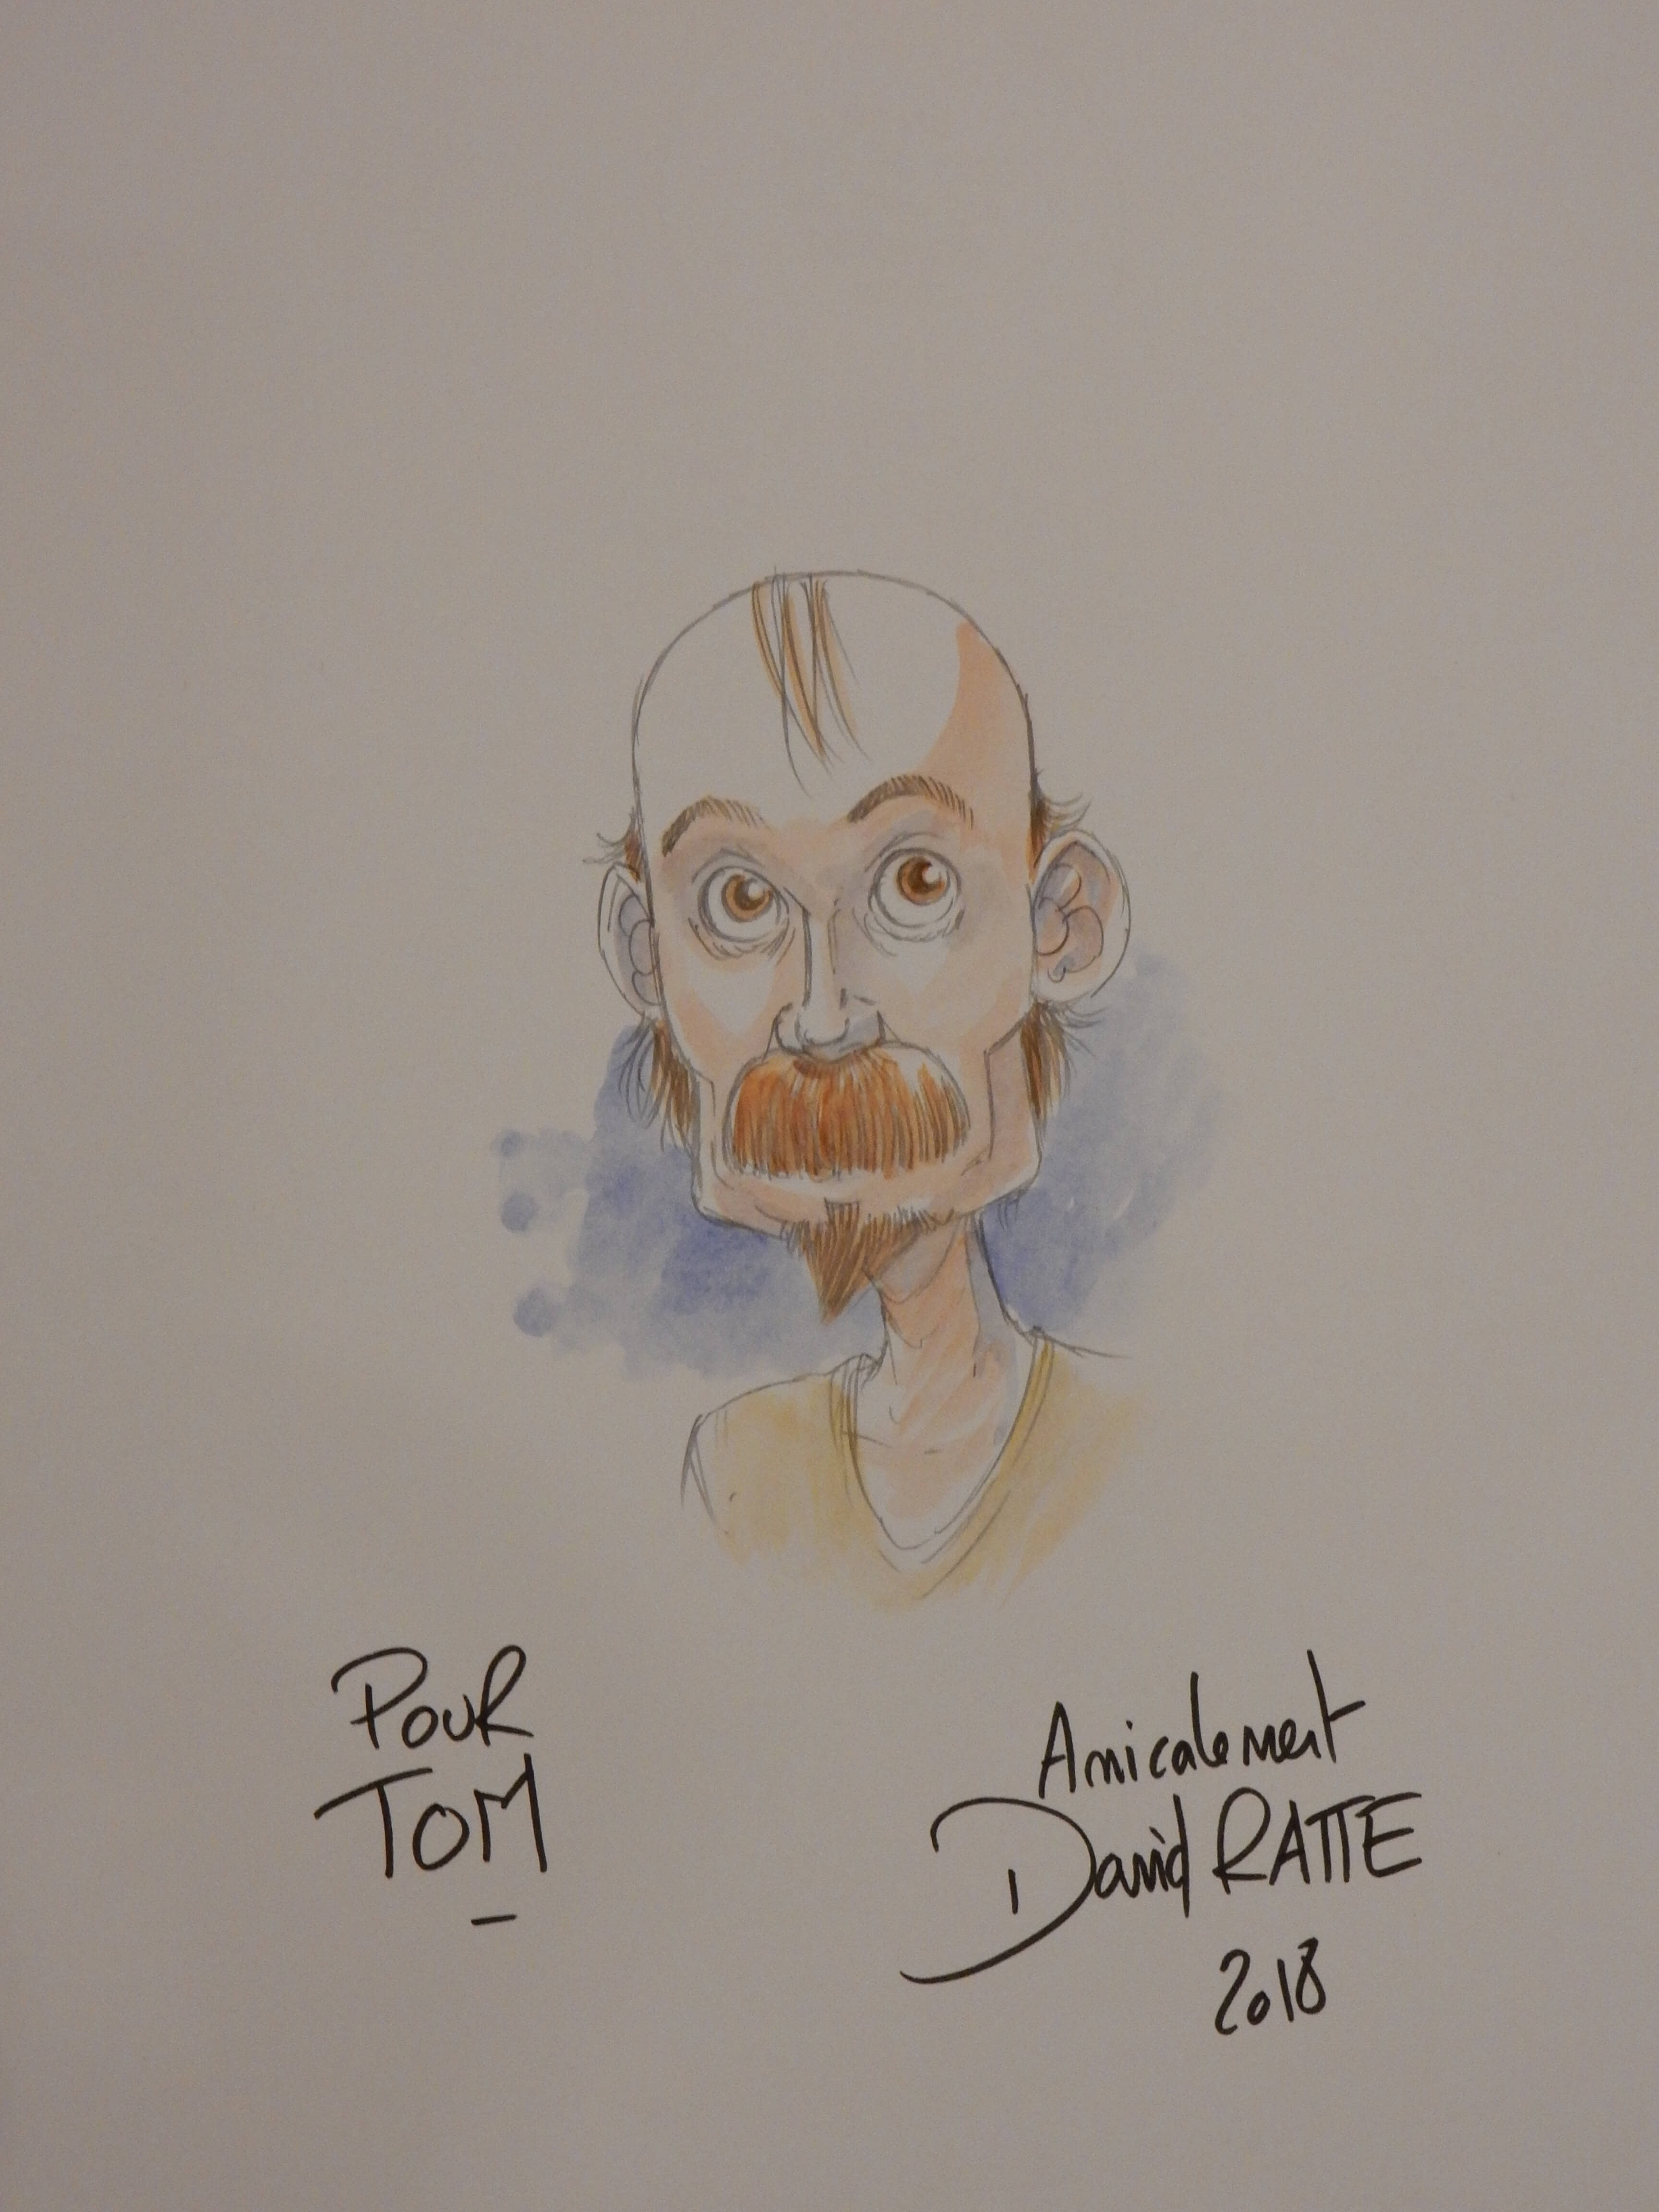 POUR
TOM
Amicalement
David RATTE
2018